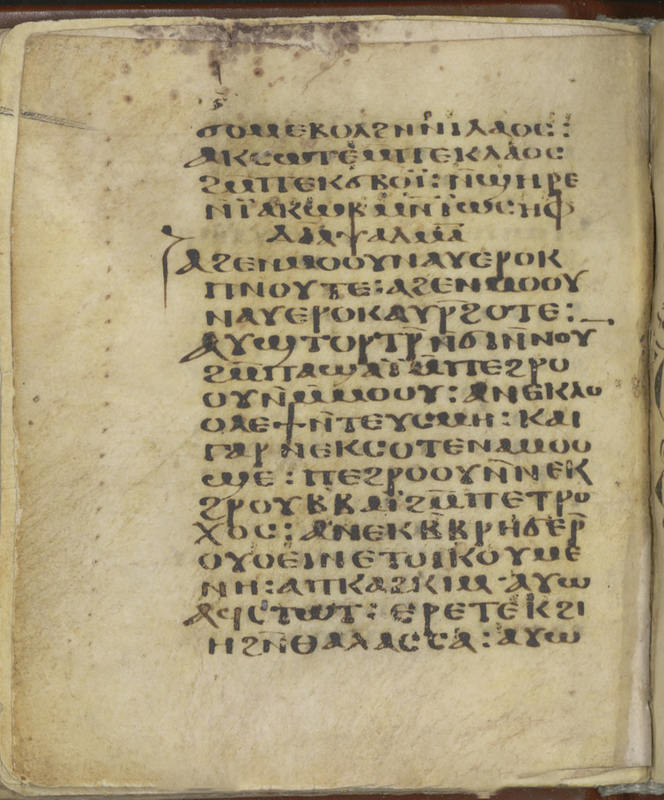 ϭⲟⲙ ⲉⲃⲟⲗ ϩⲛ ⲛ̄ⲗⲁⲟⲥ:
ⲁⲕⲥⲱⲧⲉ ⲙ̄ⲡⲉⲕⲗⲁⲟⲥ
ϩⲙ̄ⲡⲉⲕϭⲃⲟⲓ̈: ⲛ̄ϣⲏⲣⲉ
ⲛ̄ⲓ̈ⲁⲕⲱⲃ ⲙⲛ̄ ⲓ̈ⲱⲥⲏⲫ
ⲇⲓⲁⲯⲁⲗⲙⲁ
ⲁϩⲉⲛⲙⲟⲟⲩ ⲛⲁⲩ ⲉⲣⲟⲕ
ⲡⲛⲟⲩⲧⲉ: ⲁϩⲉⲛⲙⲟⲟⲩ
ⲛⲁⲩ ⲉⲣⲟⲕ ⲁⲩⲣ̄ϩⲟⲧⲉ:
ⲁⲩϣⲧⲟⲣⲧⲣ̄ ⲛ̄ϭⲓ ⲛ̄ⲛⲟⲩⲛ
ϩⲙ̄ⲡⲁϣⲁⲓ̈ ⲙ̄ⲡⲉϩⲣⲟ
ⲟⲩ ⲛ̄ⲙ̄ⲙⲟⲟⲩ: ⲁⲛⲉⲕⲗⲟ
ⲟⲗⲉ ϯ ⲛ̄ⲧⲉⲩⲥⲙⲏ: ⲕⲁⲓ
ⲅⲁⲣ ⲛⲉⲕⲥⲟⲧⲉ ⲛⲁⲙⲟⲟ
ϣⲉ: ⲡⲉϩⲣⲟⲟⲩ ⲛ̄ⲛⲉⲕ
ϩⲣⲟⲩⲃⲃⲁⲓ̈ ϩⲙ̄ⲡⲉⲧⲣⲟ
ⲭⲟⲥ: ⲁⲛⲉⲕⲃ̄ⲃⲣⲏϭⲉ ⲣ̄
ⲟⲩⲟⲉⲓⲛ ⲉⲧⲟⲓⲕⲟⲩⲙⲉ
ⲛⲏ: ⲁⲡⲕⲁϩ ⲕⲓⲙ ⲁⲩⲱ
ⲁϥⲥⲧⲱⲧ: ⲉⲣⲉⲧⲉⲕϩⲓ
ⲏ ϩⲛ̄ ⲑⲁⲗⲁⲥⲥⲁ: ⲁⲩⲱ